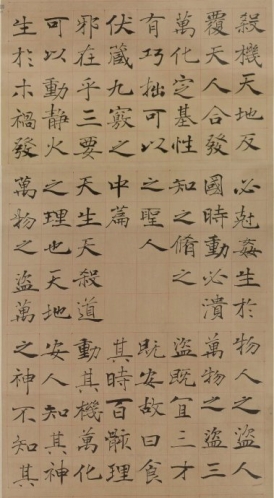 殺機天地反
覆天人合發
萬化定基性
有巧拙可以
伏藏九竅之
邪在乎三要
可以動靜火
生於木禍發
必尅姦生於
國時動必潰
知之脩之
之聖人
中篇
天生天殺道
之理也天地
萬物之盜萬
物人之盜人
萬物之盜三
盜既宜三才
既安故曰食
其時百骸理
動其機萬化
安人知其神
之神不知其